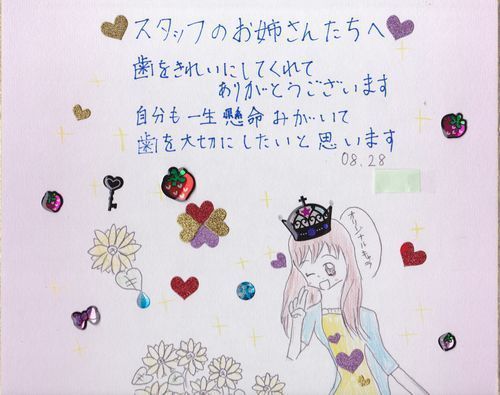 スタッフのお姉さんたちへ
歯をきれいにしてくれて
ありがとうございます
自分も一生懸命みがいて
歯を大切にしたいと思います
08.28
オリジナルキャラ